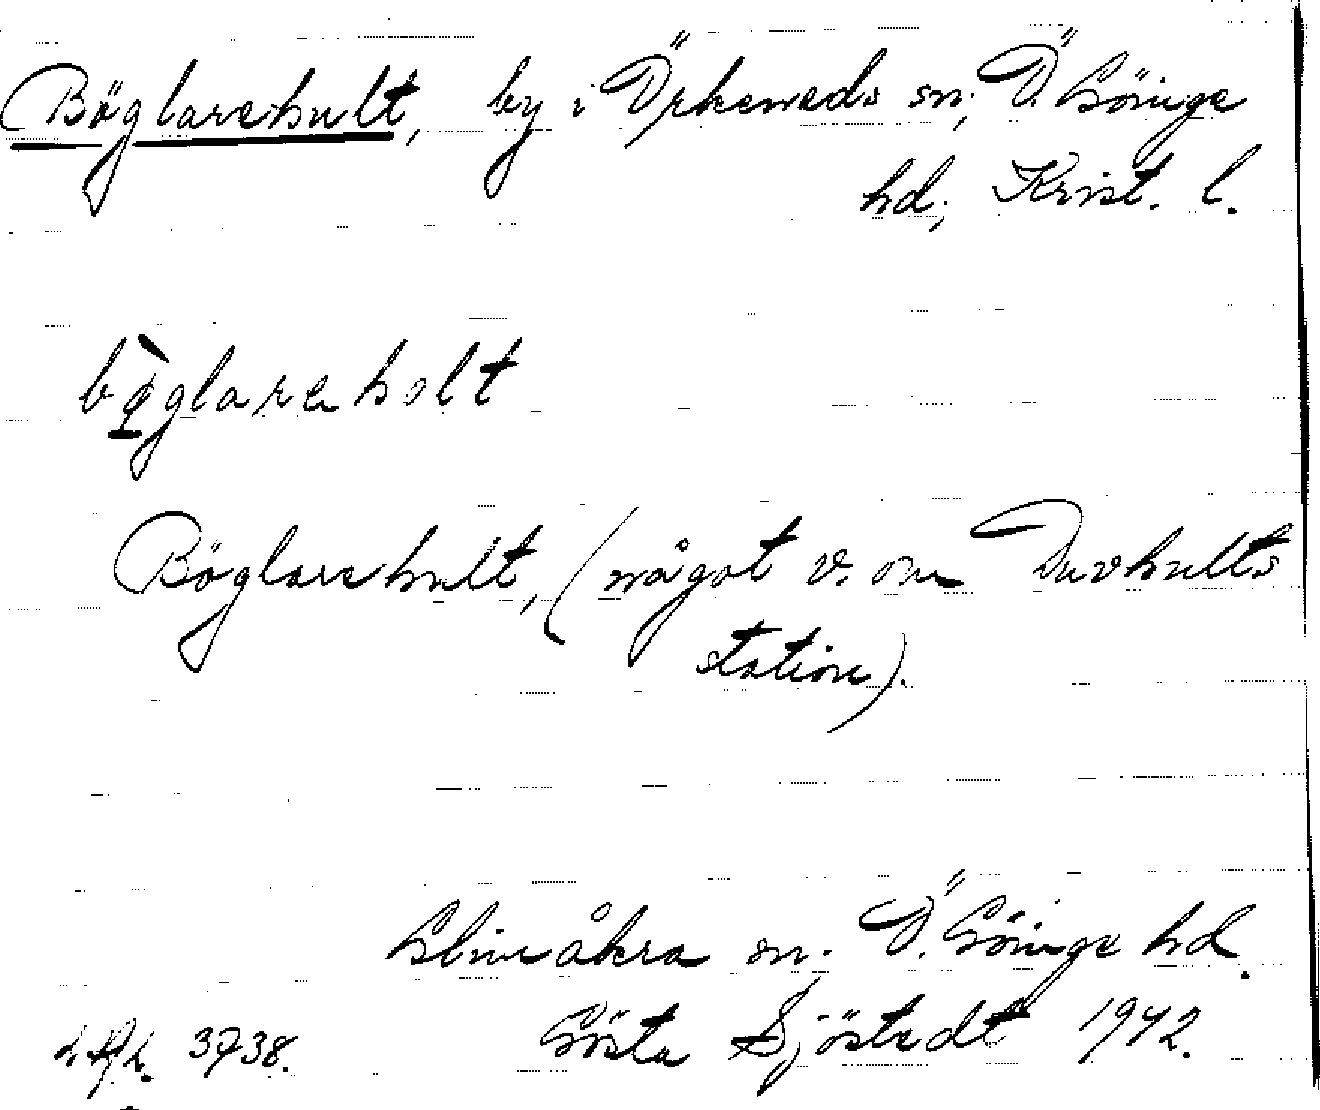 Böglarehult, by i Örkeneds sn, Ö. Göinge
hd, Krist. l.
bø̀glareholt
Böglarehult, (något v. om Duvhults
station).
Glimåkra sn. Ö. Göinge hd.
3738. Gösta Sjöstedt 1942.